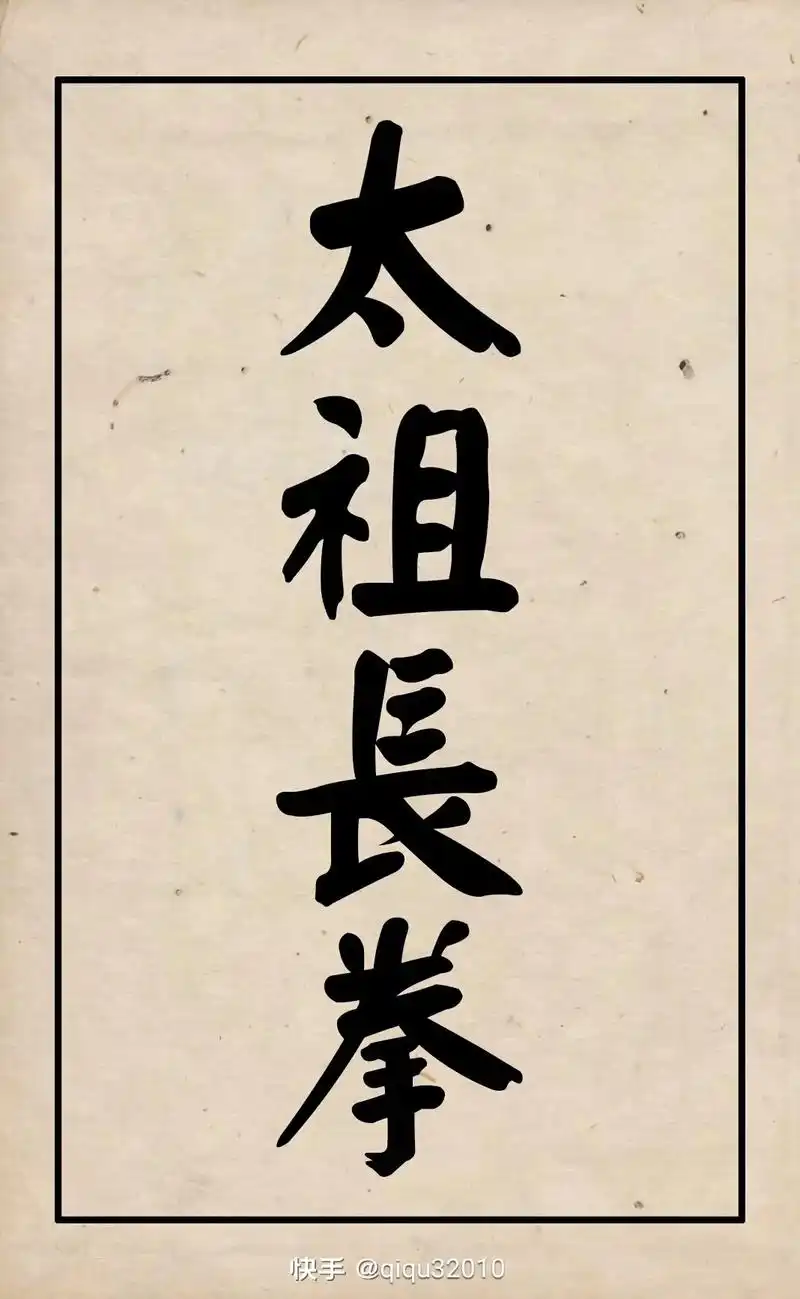 太祖長拳
快手 @qiqu32010